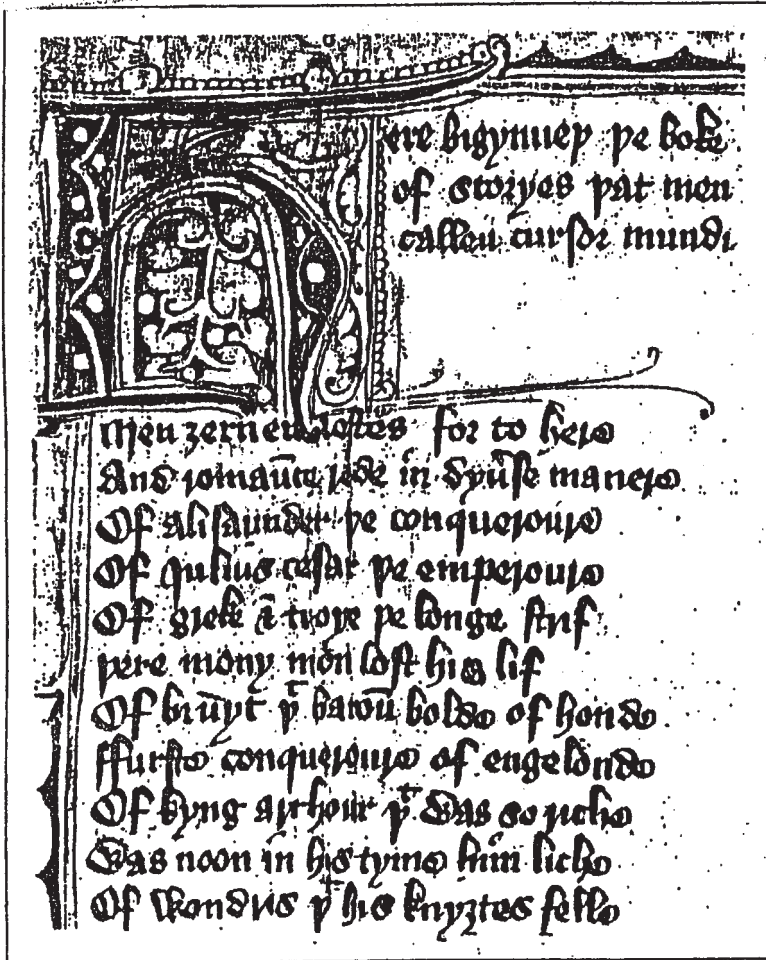 Here bigynneþ þe boke
of storyes þat men
callen cursor mundi
Men ȝernen iestes for to here
And romaūce rede in dyūse manere
Of alisaunder þe conqueroure
Of Iulius cesar þe emperoure
Of greke & troye þe longe strif
þere mony mon lost his lif
Of bruyt þᵗ baroū bolde of honde
ffurste conqueroure of engelonde
Of kyng arthour þᵗ was so riche
Was noon in his tyme him liche
Of wondris þᵗ his knyȝtes felle